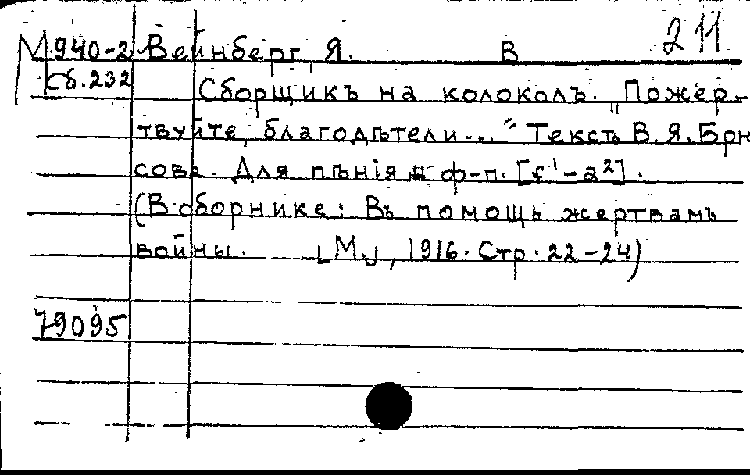 М 940-2 Вейнберг, Я. В 211
Сб. 232 Сборщикъ на колоколъ. "Пожер-
твуйте, благодѣтели..." Текстъ В.Я.Брю
сова. Для пѣнія с ф-п. [c¹-a²].
(В сборнике: Въ помощь жертвамъ
войны. [М.], 1916. Стр. 22-24)
79095